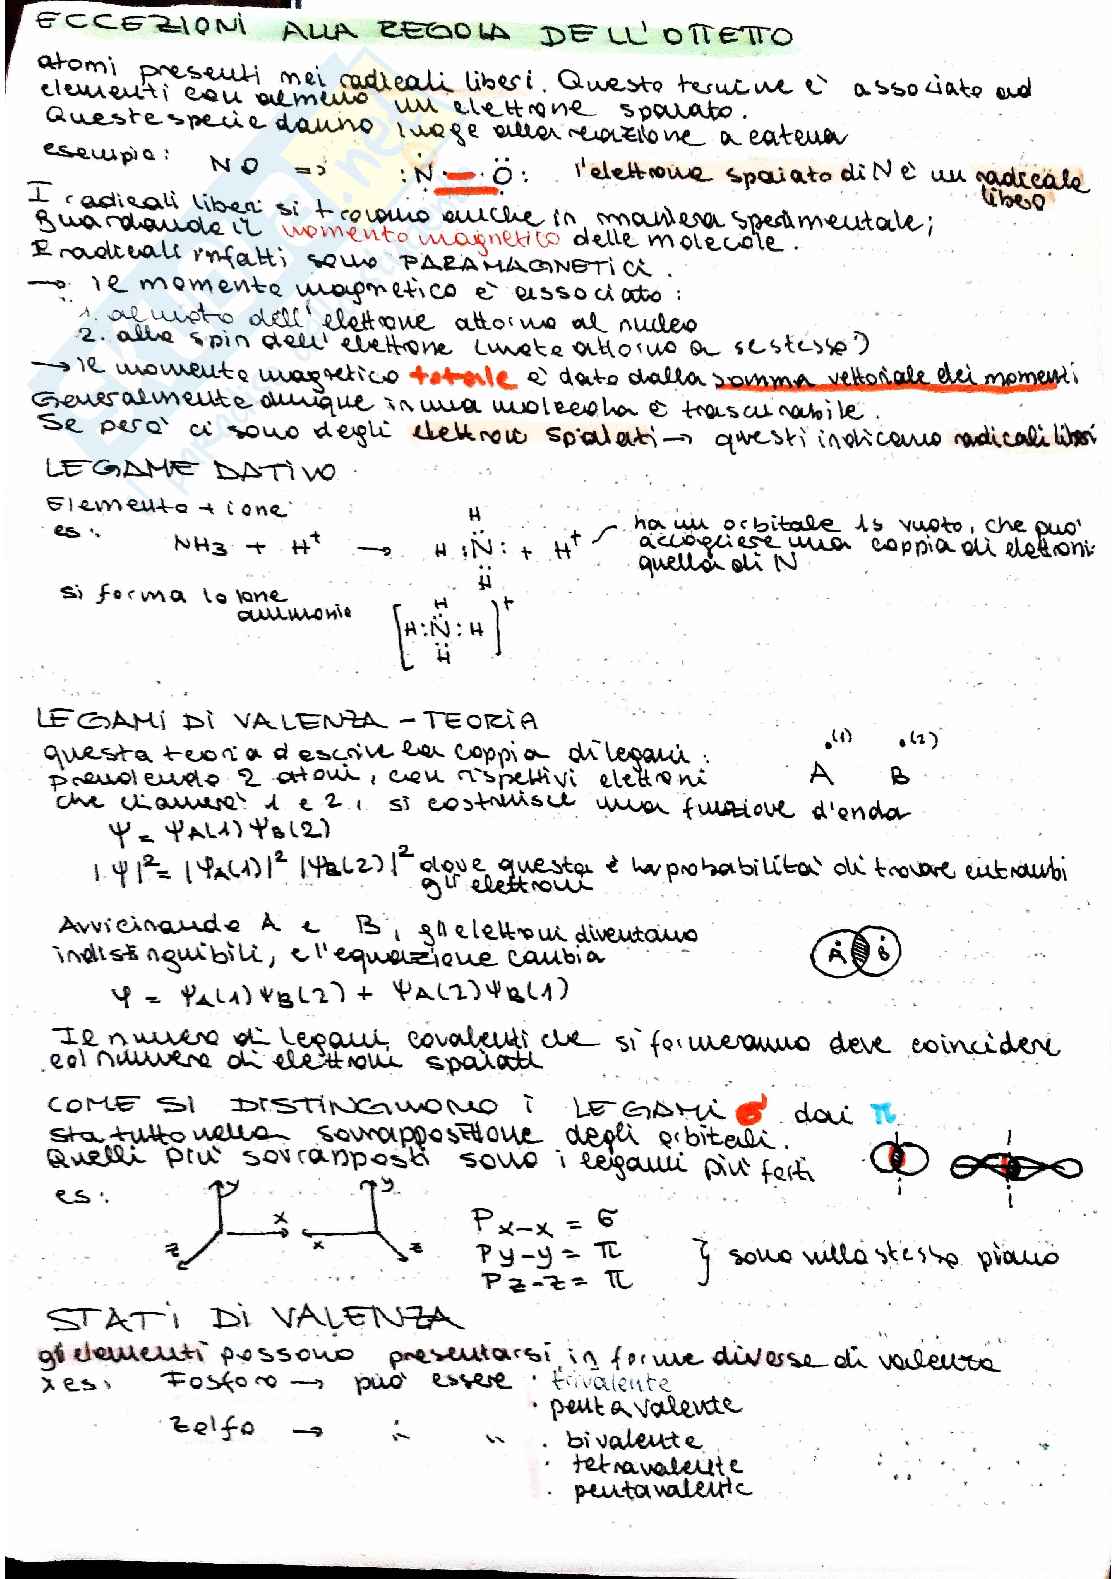 ECCEZIONI ALLA REGOLA DELL'OTTETTO
atomi presenti nei radicali liberi. Questo termine è associato ad
elementi con almeno un elettrone spaiato.
Queste specie danno luogo alla reazione a catena
esempio: NO => :N — O: l'elettrone spaiato di N è un radicale
libero
I radicali liberi si trovano anche in maniera sperimentale;
guardando il momento magnetico delle molecole.
I radicali infatti sono PARAMAGNETICI.
→ il momento magnetico è associato:
1. al moto dell'elettrone attorno al nucleo
2. allo spin dell'elettrone (moto attorno a se stesso)
→ il momento magnetico totale è dato dalla somma vettoriale dei momenti
Generalmente dunque in una molecola è trascurabile.
Se però ci sono degli elettroni spaiati → questi indicano radicali liberi
LEGAME DATIVO
Elemento + ione
es: NH3 + H+ → H :N: + H+ ha un orbitale 1s vuoto, che può
H
accogliere una coppia di elettroni
quella di N
H
si forma lo ione
ammonio
[H:N:H]+
H
H
LEGAMI DI VALENZA - TEORIA
questa teoria descrive la coppia di legami:
.(1) .(2)
prendendo 2 atomi, con rispettivi elettroni
A B
che chiamerò 1 e 2, si costruisce una funzione d'onda
Ψ = ΨA(1)ΨB(2)
|Ψ|² = |ΨA(1)|² |ΨB(2)|² dove questa è la probabilità di trovare entrambi
gli elettroni
Avvicinando A e B, gli elettroni diventano
indistinguibili, e l'equazione cambia
A B
Ψ = ΨA(1)ΨB(2) + ΨA(2)ΨB(1)
Il numero di legami covalenti che si formeranno deve coincidere
col numero di elettroni spaiati
COME SI DISTINGUONO I LEGAMI σ dai π
sta tutto nella sovrapposizione degli orbitali.
Quelli più sovrapposti sono i legami più forti
es:
y y
x x
z z
Px-x = σ
Py-y = π
Pz-z = π
} sono sullo stesso piano
STATI DI VALENZA
gli elementi possono presentarsi in forme diverse di valenza
x es. Fosforo → può essere · trivalente
· pentavalente
Zolfo → " " · bivalente
· tetravalente
· pentavalente